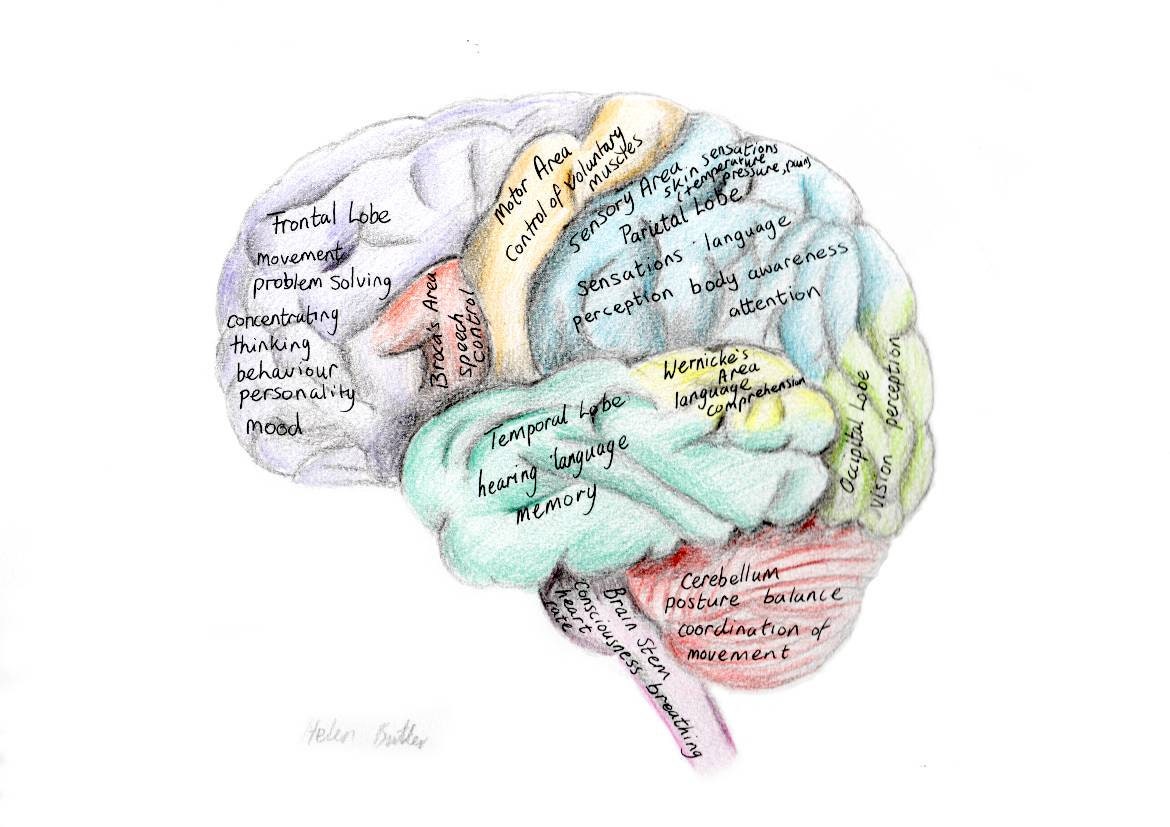 Frontal Lobe
movement
problem solving
concentrating
thinking
behaviour
personality
mood
Broca's Area
speech
control
Motor Area
Control of voluntary
muscles
Sensory Area
skin sensations
(temperature
pressure, pain)
Parietal Lobe
sensations language
perception body awareness
attention
Wernicke's
Area
language
comprehension
Occipital Lobe
vision perception
Temporal Lobe
hearing language
memory
Brain Stem
consciousness breathing
heart
rate
Cerebellum
posture balance
coordination of
movement
Helen Butler